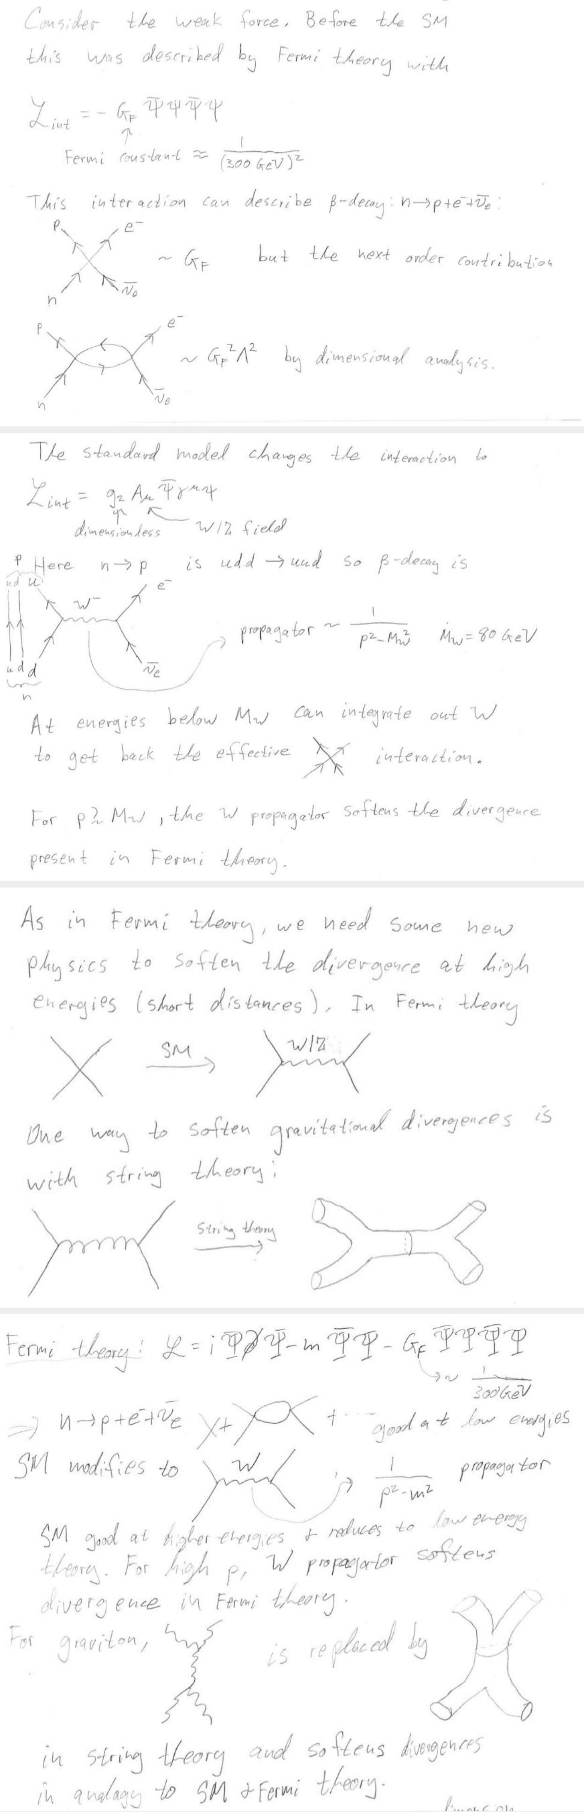 Consider the weak force. Before the SM
this was described by Fermi theory with
ℒint = - GF Ψ̄ΨΨ̄Ψ
Fermi constant ≈ 1/(300 GeV)²
This interaction can describe β-decay: n→p+e⁻+ν̄e:
p e⁻
~ GF but the next order contribution
n ν̄e
p e⁻
~ GF²Λ² by dimensional analysis.
n ν̄e
The standard model changes the interaction to
ℒint = g₂ Aμ Ψ̄γ^μΨ
dimensionless W/Z field
p Here n→p is udd → uud so β-decay is
ud u e⁻
W⁻
propagator ~ 1/(p²-Mw²) Mw = 80 GeV
ν̄e
u d d
n
At energies below Mw can integrate out W
to get back the effective interaction.
For p≳Mw, the W propagator softens the divergence
present in Fermi theory.
As in Fermi theory, we need some new
physics to soften the divergence at high
energies (short distances). In Fermi theory
SM W/Z
One way to soften gravitational divergences is
with string theory:
string theory
Fermi theory: ℒ = iΨ̄∂̸Ψ - mΨ̄Ψ - GF Ψ̄ΨΨ̄Ψ
~ 1/300GeV
⇒ n→p+e⁻+ν̄e + + ... good at low energies
SM modifies to W 1/(p²-m²) propagator
SM good at higher energies + reduces to low energy
theory. For high p, W propagator softens
divergence in Fermi theory.
For graviton, is replaced by
in string theory and softens divergences
in analagy to SM & Fermi theory.